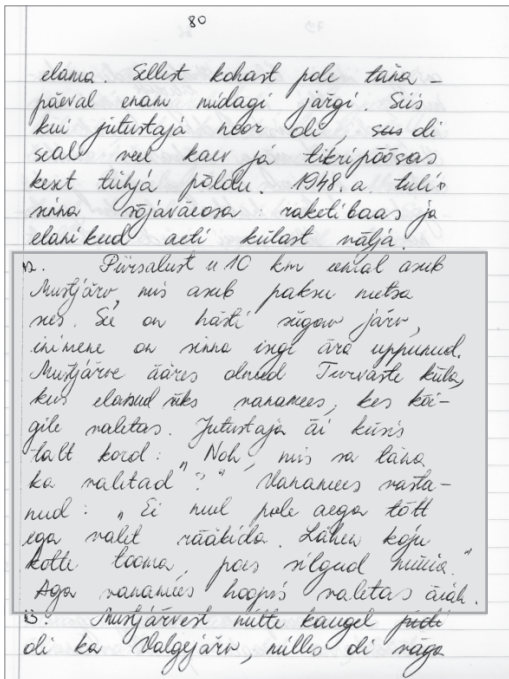 80
elama. Sellest kohast pole täna-
päeval enam midagi järgi. Siis
kui jutustaja noor oli, siis oli
seal veel kaev ja tikripõõsas
keset tühja põldu. 1948. a. tuli
sinna sõjaväeosa: raketibaas ja
elanikud aeti külast välja.
12. Piirsalust u 10 km eemal asub
Mustjärv, mis asub paksu metsa
sees. See on hästi sügav järv,
inimene on sinna isegi ära uppunud.
Mustjärve ääres olnud Turvaste küla,
kus elanud üks vanamees, kes kõi-
gile valetas. Jutustaja äi küsis
talt kord: "Noh, mis sa täna
ka valetad"?" Vanamees vasta-
nud: "Ei mul pole aega tõtt
ega valet rääkida. Lähen koju
kotte tooma, poes silgud müüa."
Aga vanamees hoopis valetas äiale.
13. Mustjärvest mitte kaugel
oli ka Valgejärv, milles oli väga